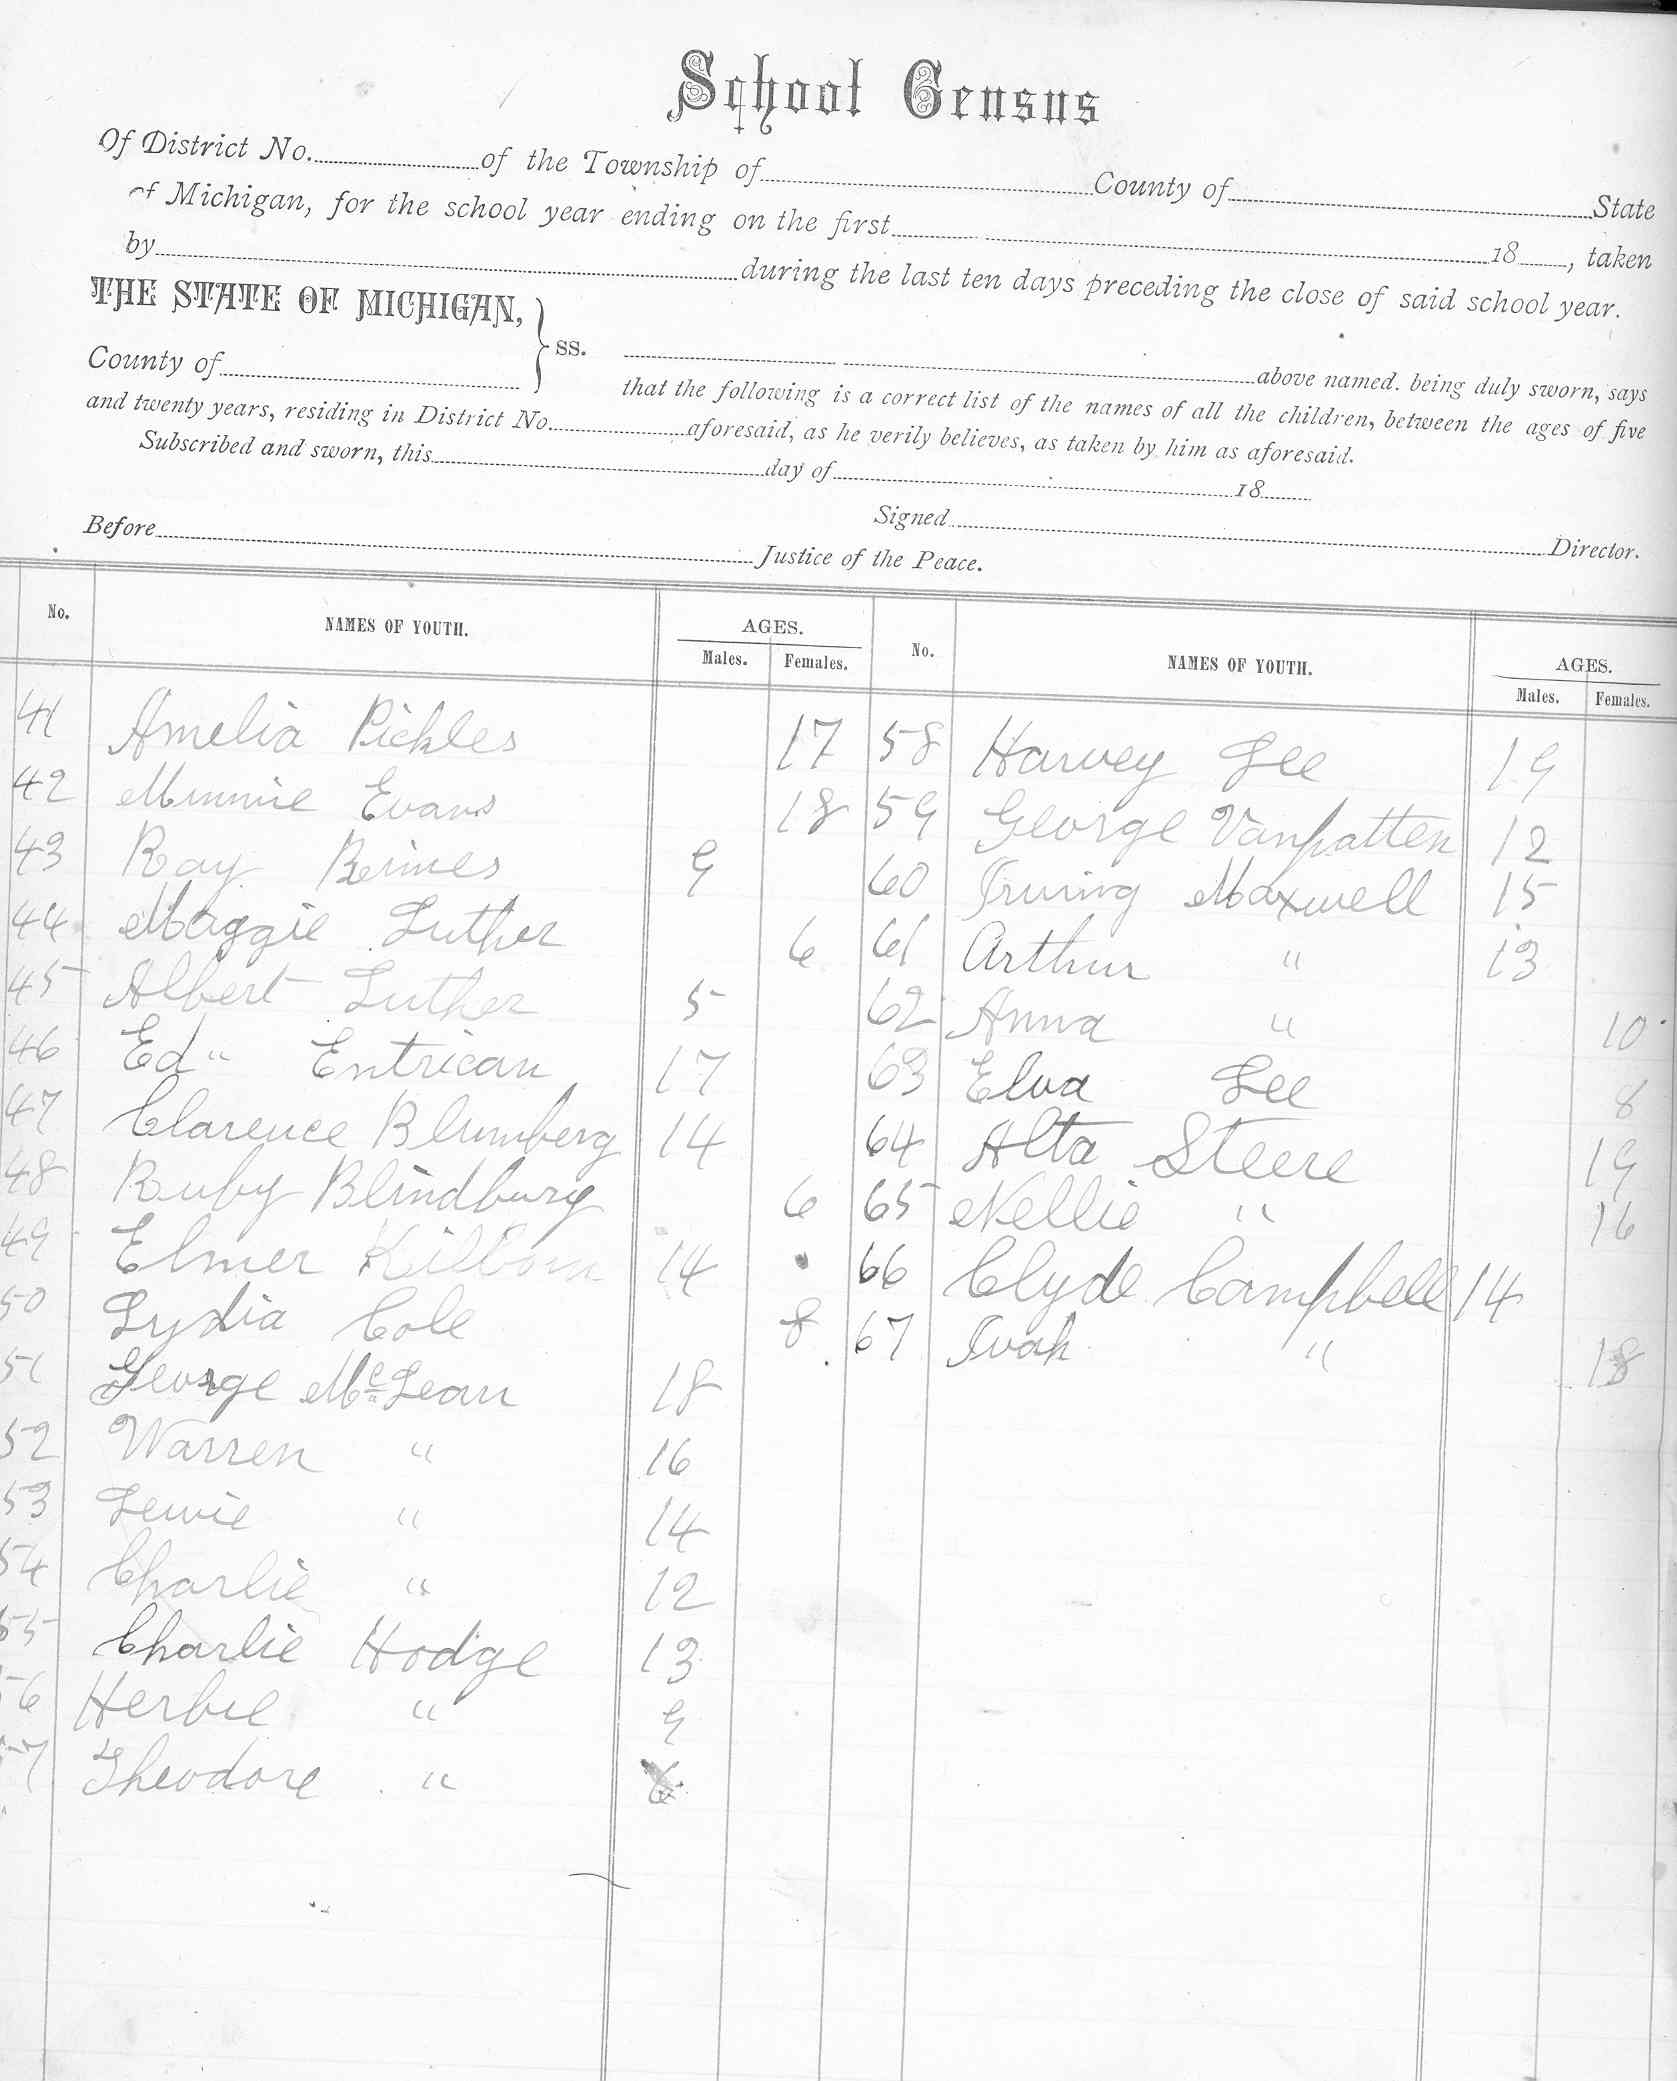 School Census
Of District No. of the Township of County of State
of Michigan, for the school year ending on the first 18 , taken
by during the last ten days preceding the close of said school year.
THE STATE OF MICHIGAN,
County of
ss.
above named. being duly sworn, says
that the following is a correct list of the names of all the children, between the ages of five
and twenty years, residing in District No. aforesaid, as he verily believes, as taken by him as aforesaid.
Subscribed and sworn, this day of 18
Signed Director.
Before Justice of the Peace.
No. NAMES OF YOUTH. AGES. Males. Females.
41 Amelia Pickles 17
42 Minnie Evans 18
43 Ray 9
44 Maggie Luther 6
45 Albert Luther 5
46 Ed" Entrican 17
47 Clarence Blumberg 14
48 Ruby Blindbury 6
49 Elmer Kilborn 14
50 Lydia Cole 8
51 George McLean 18
52 Warren " 16
53 Lewie " 14
54 Charlie " 12
55 Charlie Hodge 13
56 Herbie " 9
57 Theodore " 6
No. NAMES OF YOUTH. AGES. Males. Females.
58 Harvey Lee 19
59 George Vanpatten 12
60 Irving Maxwell 15
61 Arthur " 13
62 Anna " 10
63 Elva Lee 8
64 Alta Steere 19
65 Nellie " 16
66 Clyde Campbell 14
67 Ivah " 18